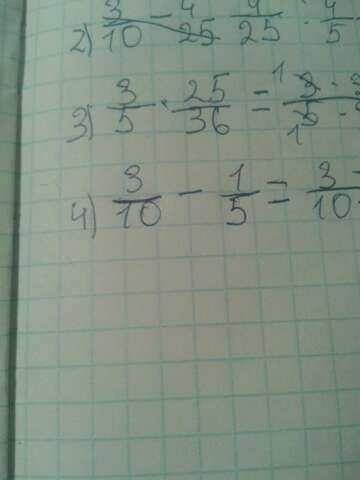 2) 3/10 - 4/25 4/25 : 4/5
3) 3/5 · 25/36 = 3 · / 5 ·
4) 3/10 - 1/5 = 3 - / 10